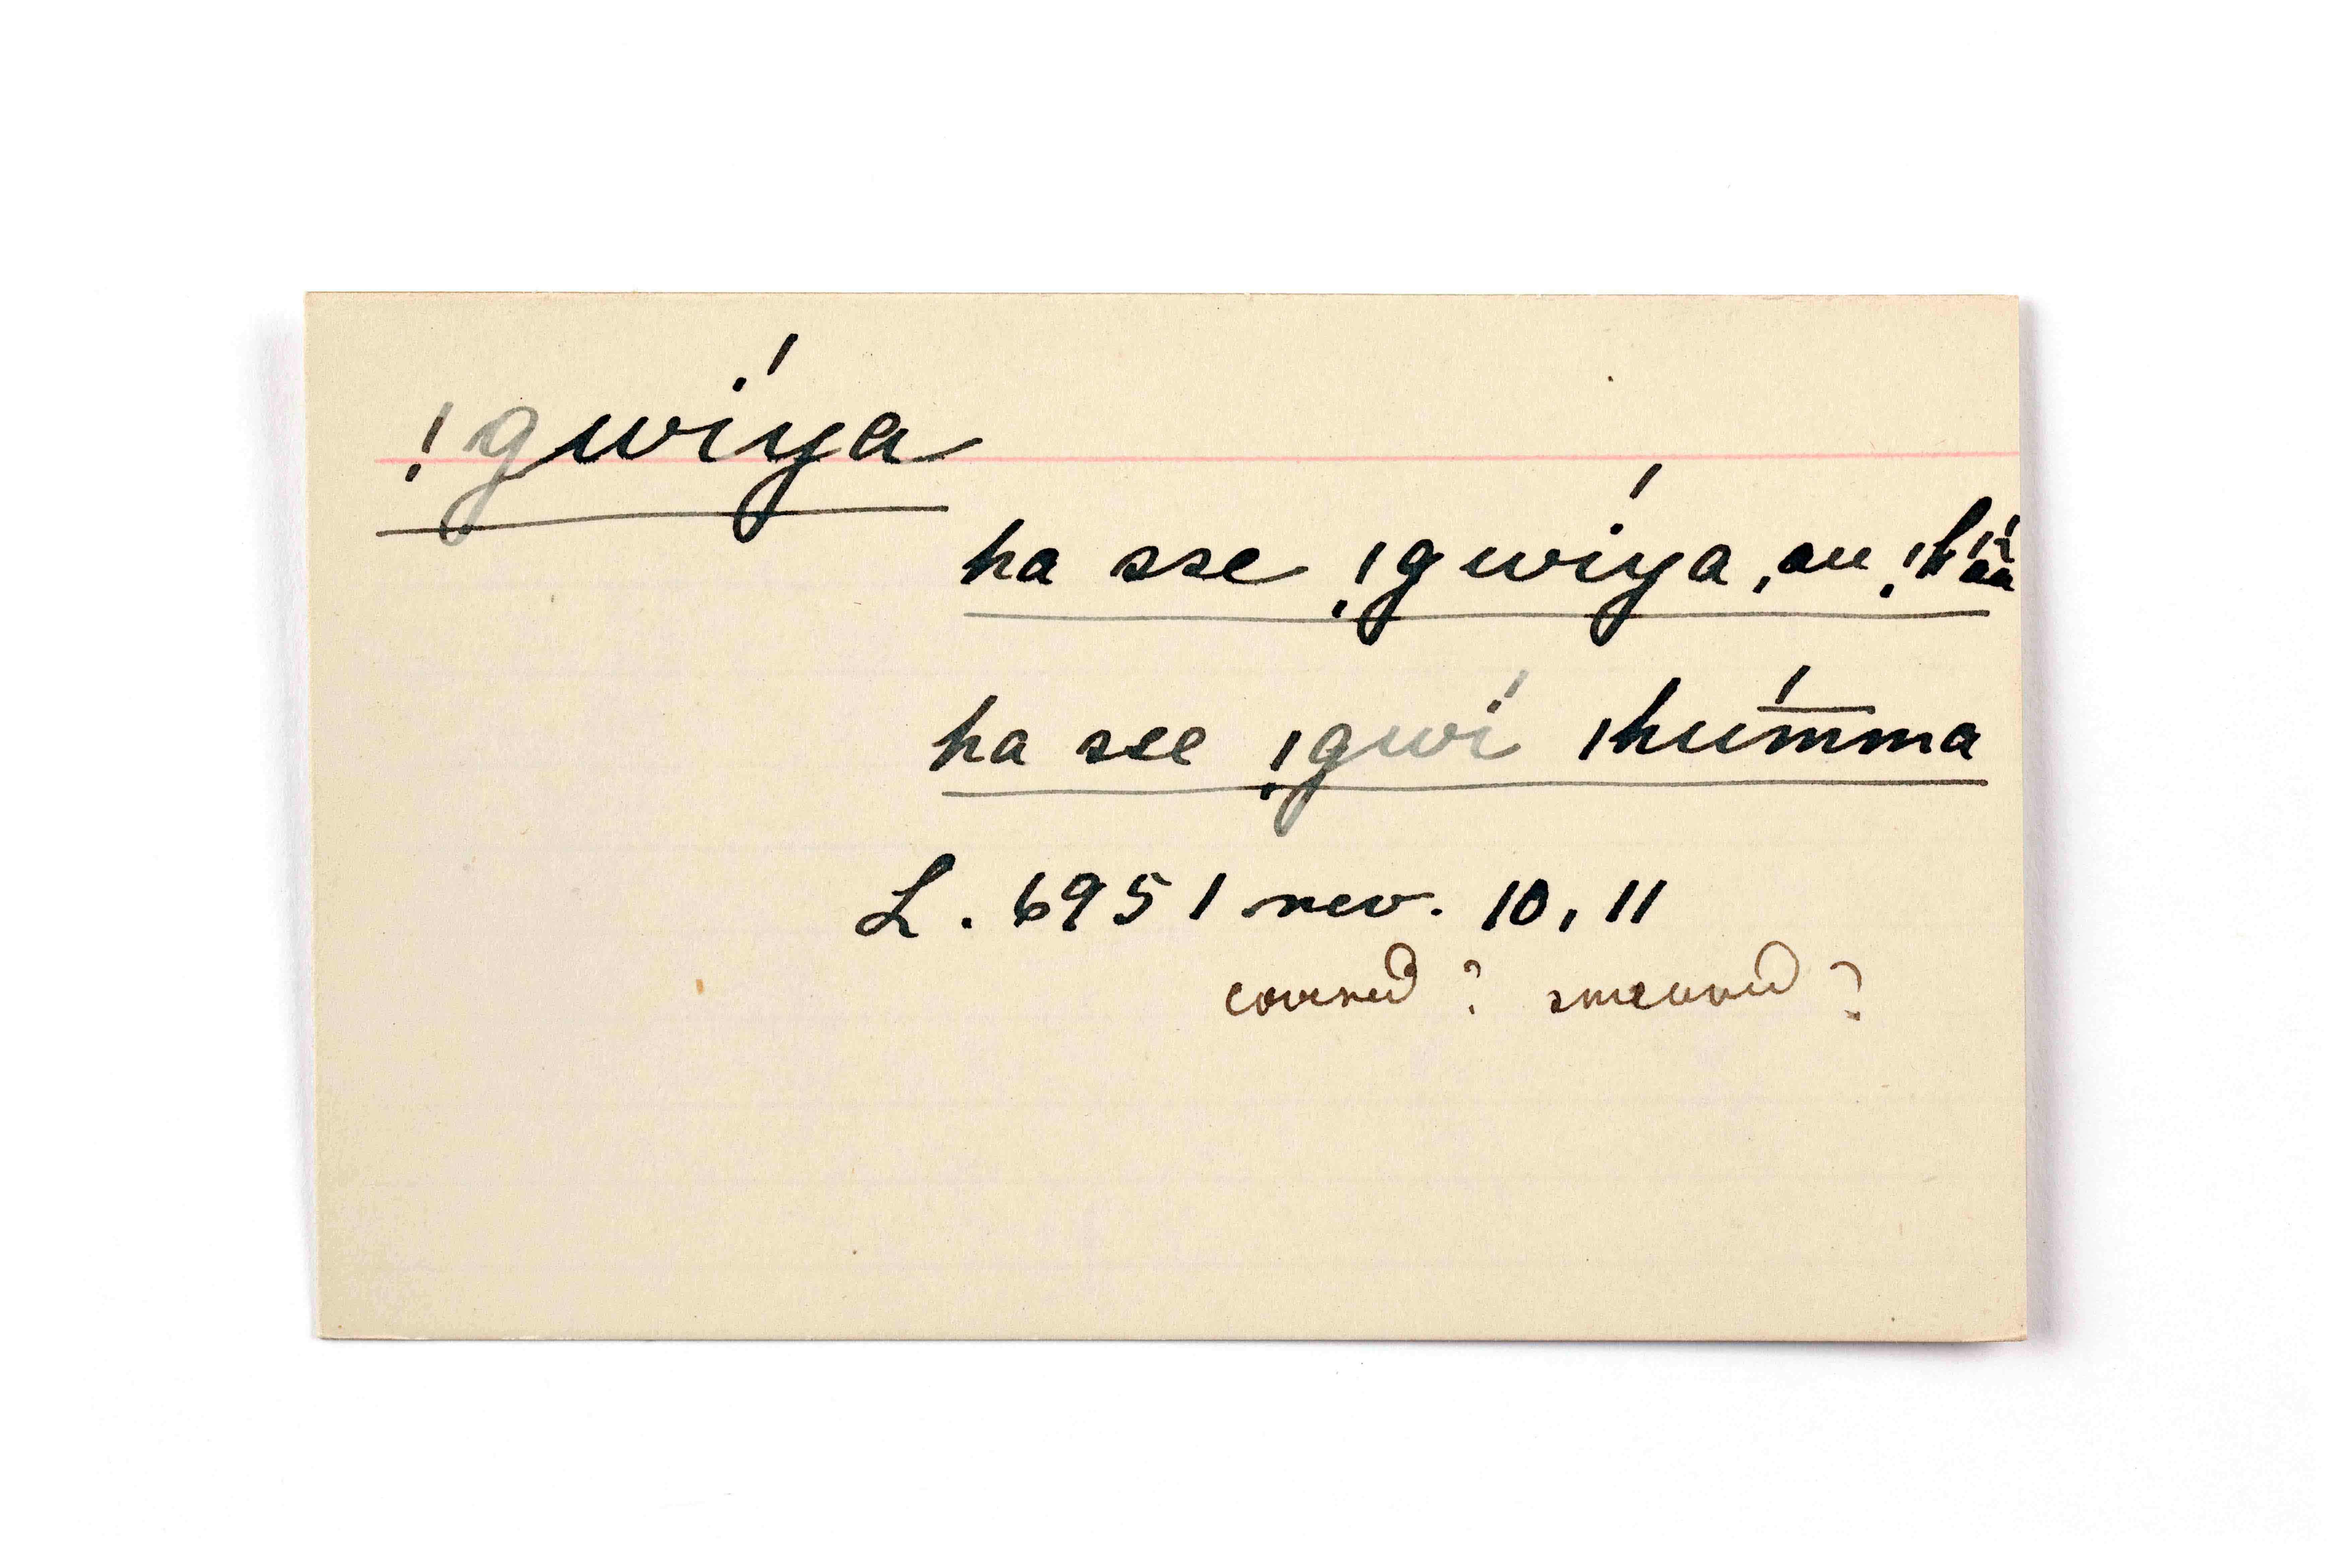 !gwíya
ha sse !gwíya, au
ha see !gwí ǀhúm̄ma
L. 6951 rev. 10, 11
covered? smeared?